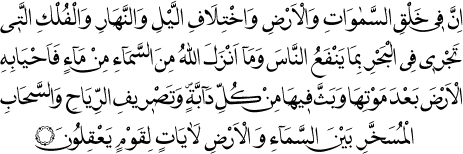 اِنَّ فٖى خَلْقِ السَّمٰوَاتِ وَالْاَرْضِ وَاخْتِلَافِ الَّيْلِ وَالنَّهَارِ وَالْفُلْكِ الَّتٖى
تَجْرٖى فِى الْبَحْرِ بِمَا يَنْفَعُ النَّاسَ وَمَٓا اَنْزَلَ اللّٰهُ مِنَ السَّمَٓاءِ مِنْ مَٓاءٍ فَاَحْيَا بِهِ
الْاَرْضَ بَعْدَ مَوْتِهَا وَبَثَّ فٖيهَا مِنْ كُلِّ دَٓابَّةٍ وَتَصْرٖيفِ الرِّيَاحِ وَالسَّحَابِ
الْمُسَخَّرِ بَيْنَ السَّمَٓاءِ وَالْاَرْضِ لَاٰيَاتٍ لِقَوْمٍ يَعْقِلُونَ